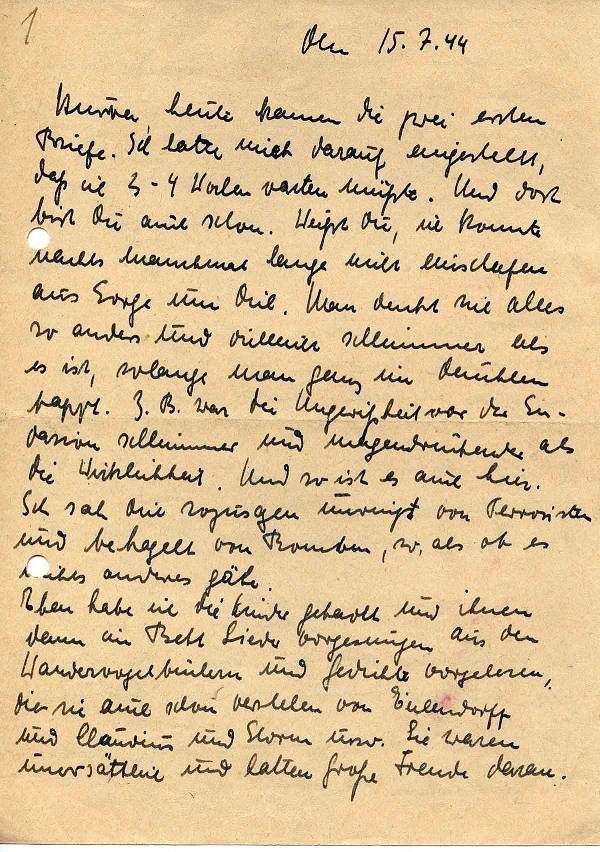 1
Den 15.7.44
Hurra, heute kamen die zwei ersten
Briefe. Ich hatte mich darauf eingestellt,
daß ich 3-4 Wochen warten müßte. Und dort
bist Du auch schon. Weißt Du, ich konnte
nachts manchmal lange nicht einschlafen
aus Sorge um Dich. Man denkt sich alles
so anders und vielleicht schlimmer als
es ist, solange man ganz im Dunklen
tappt. Z.B. war die Ungewißheit vor der In-
vasion schlimmer und nagender als
die Wirklichkeit. Und so ist es auch hier.
Ich sah Dich sozusagen umringt von Terroristen
und behagelt von Bomben, so, als ob es
nichts anderes gäbe.
Eben habe ich die Kinder gebadet und ihnen
dann im Bett Lieder vorgesungen aus den
Wandervogelbüchern und Gedichte vorgelesen,
die sie auch schon verstehen von Eichendorff
und Claudius und Storm usw. Sie waren
unersättlich und hatten große Freude daran.